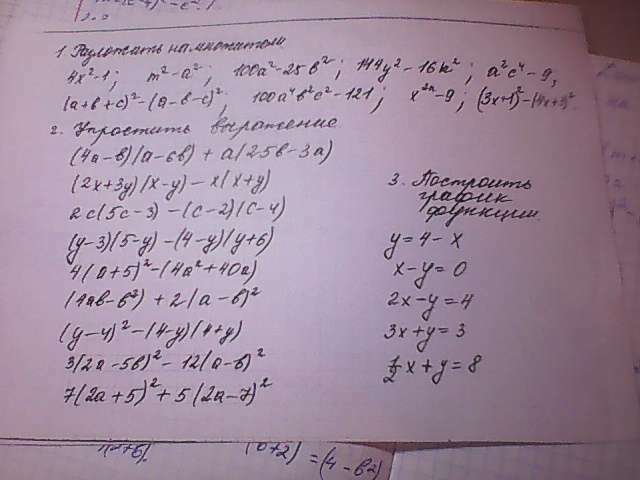 1. Разложить на множители
4x²-1; m²-a²; 100a²-25b²; 144y²-16k²; a²c⁴-9;
(a+b+c)²-(a-b-c)²; 100a⁴b²c²-121; x²ⁿ-9; (3x+1)²-(4x+3)²
2. Упростить выражение
(4a-b)(a-6b)+a(25b-3a)
(2x+3y)(x-y)-x(x+y)
2c(5c-3)-(c-2)(c-4)
(y-3)(5-y)-(4-y)(y+6)
4(a+5)²-(4a²+40a)
(4ab-b²)+2(a-b)²
(y-4)²-(4-y)(4+y)
3(2a-5b)²-12(a-b)²
7(2a+5)²+5(2a-7)²
3. Построить
график
функции.
y=4-x
x-y=0
2x-y=4
3x+y=3
½x+y=8
=(4-b²)